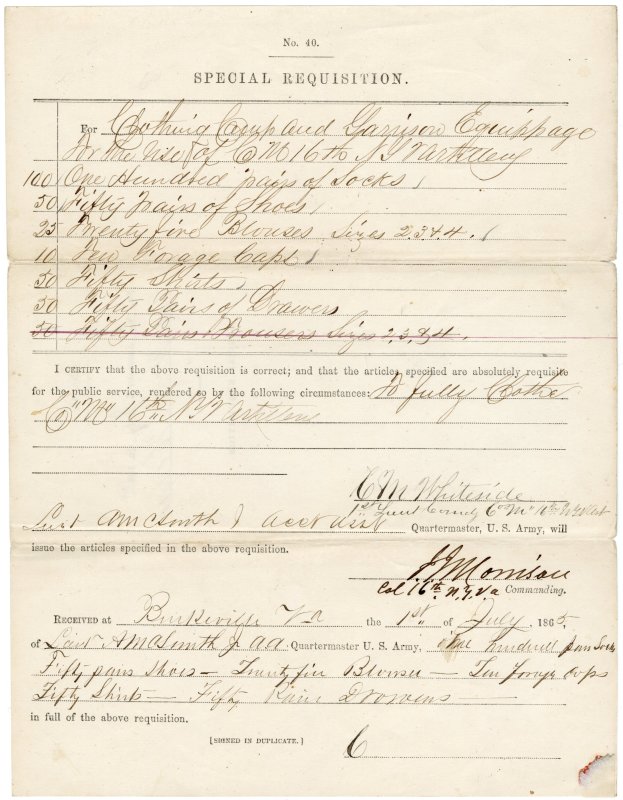 No. 40.
SPECIAL REQUISITION.
For Clothing Camp and Garrison Equippage
for the use of Co M 16th N Y V Artillery
100 One Hundred pairs of Socks
50 Fifty pairs of Shoes
25 Twenty five Blouses Sizes 2, 3 & 4.
10 Ten Forage Caps
50 Fifty Shirts
50 Fifty Pairs of Drawers
50 Fifty Pairs Trousers Sizes 2, 3, & 4.
I CERTIFY that the above requisition is correct; and that the articles specified are absolutely requisite
for the public service, rendered so by the following circumstances: To fully Clothe
Co "M" 16th N Y V Artillery
C M Whiteside
1st Lieut Comdg Co "M" 16th N.Y. V Art
Lieut A McSmith Quartermaster, U. S. Army, will
issue the articles specified in the above requisition.
J J Morrison
Col 16th N.Y. V a Commanding.
RECEIVED at Burkeville Va the 1st of July, 1865,
of Lieut A McSmith Quartermaster U. S. Army, One hundred pairs Socks
Fifty pairs Shoes — Twenty five Blouses — Ten forage Caps
Fifty Shirts — Fifty Pairs Drawers —
in full of the above requisition.
[SIGNED IN DUPLICATE.]
C